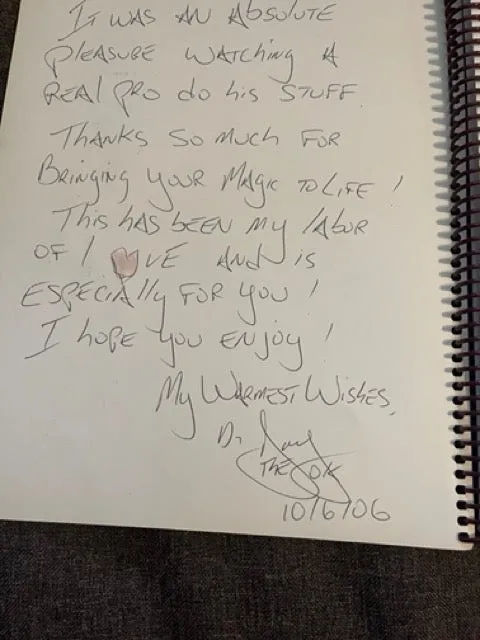 It was an Absolute
pleasure watching a
Real pro do his stuff
Thanks so much for
Bringing your Magic to Life!
This has been my labor
of l♥ve and is
especially for you!
I hope you enjoy!
My Warmest Wishes,
Dr
The
10/6/06